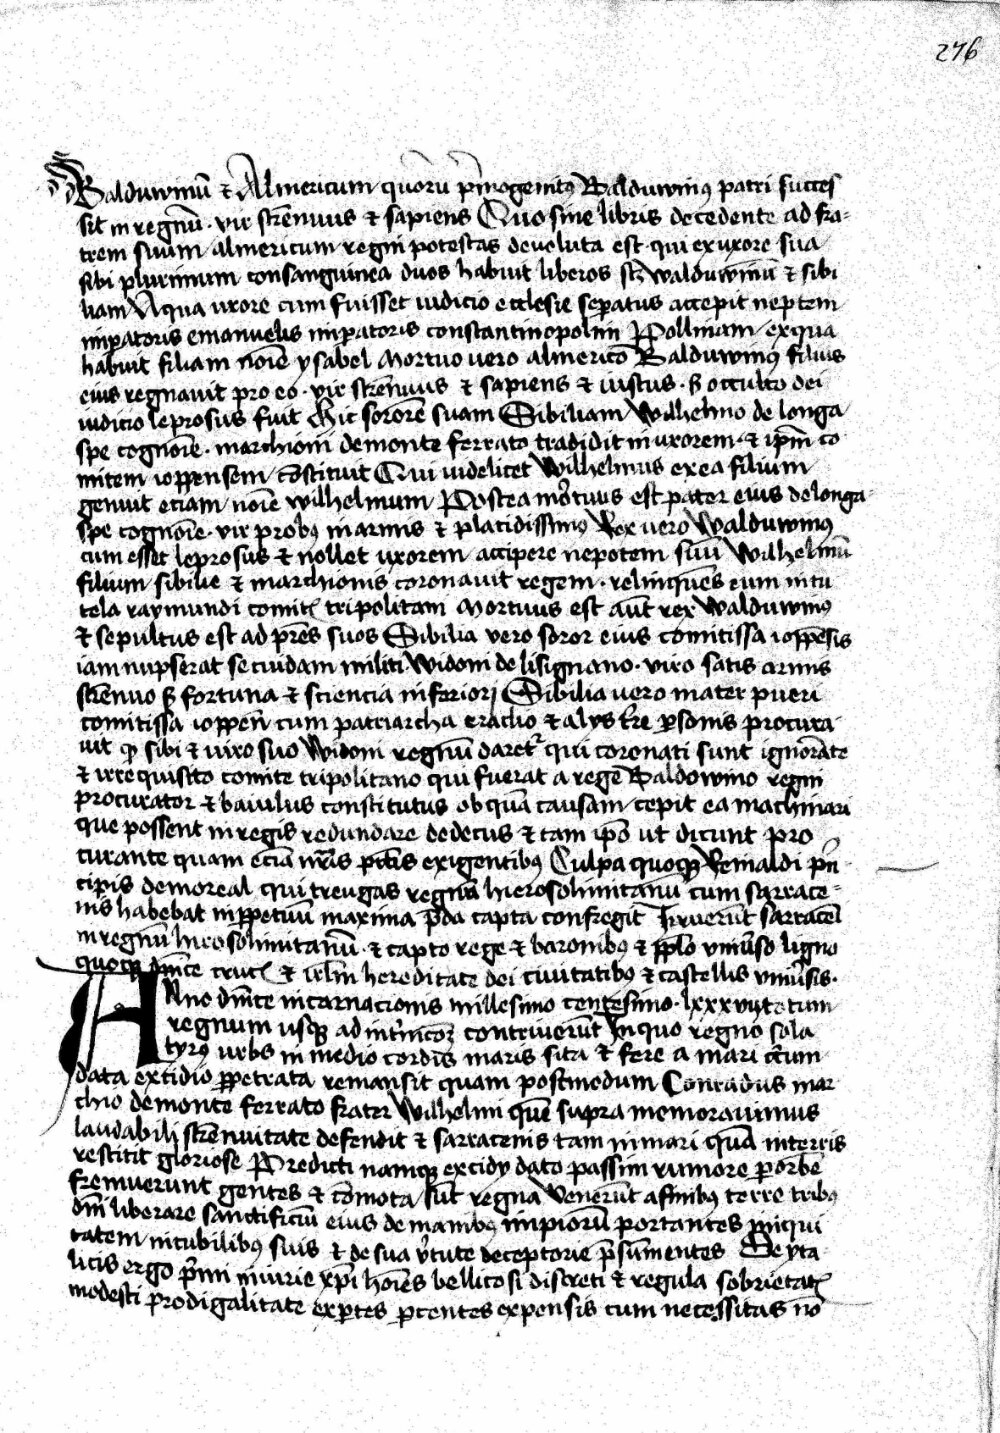 276
Balduwinū & Almericum quorū p̄mogenitꝰ Balduwinꝰ patri succes
sit in regnū · vir strēnuus & sapiens Quo sine libris decedente ad fra-
trem suum almericum regni potestas devoluta est · qui ex uxore sua
sibi plurimum consanguinea duos habuit liberos scz walduwinū & sibi
liam A qua uxore cum fuisset iudicio ecclesie sepatus accepit neptem
impatoris emanuelis impatoris constantinopolim Pollinam ex qua
habuit filiam noīe ysabel Mortuo vero almerico Balduwinꝰ filius
eius regnavit pro eo · vir strēnuus & sapiens & iustus · s̄ occulto dei
iudicio leprosus fuit Hic sororē suam Sibiliam Wilhelmo de longa
spe cognoīe · marchioni de monte ferrato tradidit in uxorem · & ip̄m co
mitem ioppensem cōstituit Qui videlicet Wilhelmus ex ea filium
genuit etiam noīe wilhelmum Postea mortuus est pater eius de longa-
spe cognoīe · vir probꝰ in armis & placidissimus Rex vero Walduwinꝰ
cum esset leprosus & nollet uxorem accipere nepotem suū Wilhelmū
filium sibilie & marchionis coronavit regem · relinquēs eum in tu
tela raymundi comitꝭ tripolitani Mortuus est aūt rex Walduwinꝰ
& sepultus est ad p̄res suos Sibilia vero soror eius comitissa ioppēsis
iam nupserat se cuidam militi Widoni de lisignano · viro satis armis
strēnuo s̄ fortuna & sciencia inferiori Sibilia vero mater pueri
comitissa ioppeñ cum patriarcha eraclio & alijs tr̄re p̄sonis procura
vit ꝙ sibi & viro suo Widoni regnū daret̄ qui coronati sunt ignorāte
& irrequisito comite tripolitano qui fuerat a rege Baldowino regni
procurator & baiulus constitutus ob quā causam cepit ea machinari
que possent in regis redundare dedecus & tam ip̄o ut dicunt pro
curante quam eciā nr̄is pctīs exigentibꝰ Culpa quoqꝫ Reinaldi p̄n
cipis de moreal qui treugas regnū hierosolimitanū cum sarrace-
nis habebat in ppetuū maxima p̄da capta confregit Irruerūt sarraceī
in regnū hierosolimitanū · & capto rege & baronibꝰ & pp̄lo univ̄so ligno
quoqꝫ dn̄ice crucꝭ & irlm̄ hereditate dei civitatibꝰ & castellis univ̄sis ·
Anno dn̄ice incarnacionis millesimo centesimo · lxxxvij totum
regnum usqꝫ ad int̄nicōꝫ contriverūt In quo regno sola
tyrꝰ urbs in medio cordis maris sita & fere a mari c̄cum
data excidio ppetrata remansit quam postmodum Conradus mar
chio de monte ferrato frater Wilhelmi quē supra memoravimus
laudabili strēnuitate defendit & sarracenis tam in mari quā in terris
restitit gloriose Predicti namqꝫ excidij dato passim rumore p orbē
fremuerunt gentes & cōmota sūt regna Venerūt a finibꝰ terre tribꝰ
dn̄i liberare sanctificiū eius de manibꝰ impiorū portantes iniqui
tatem in cubilibꝰ suis & de sua v̄tute deceptorie p̄sumentes De yta-
licis ergo p̄mi iniurie xp̄i hoīes bellicosi discreti & regula sobrietatꝭ
modesti prodigalitate expertes pcentes expensis cum necessitas nō